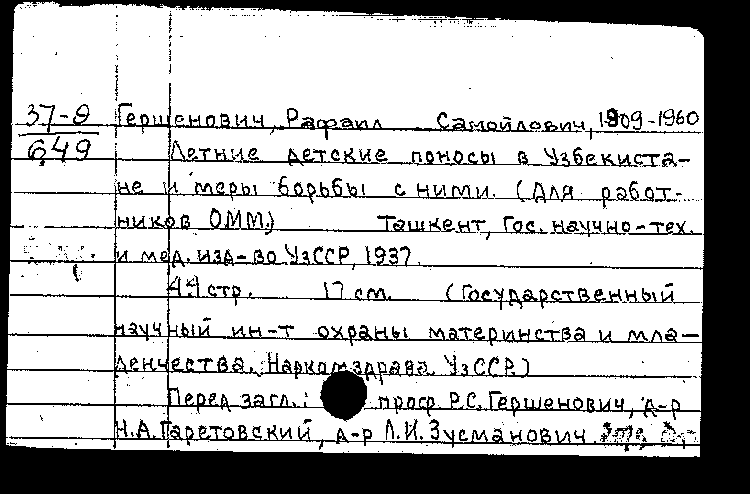 37-9 Гершенович, Рафаил Самойлович, 1909-1960
649 Летние детские поносы в Узбекиста-
не и меры борьбы с ними. (Для работ-
ников ОММ.) Ташкент, Гос. научно-тех.
и мед. изд-во УзССР, 1937.
44 стр. 17 см. (Государственный
научный ин-т охраны материнства и мла-
денчества. Наркомздрава УзССР.)
Перед загл.: проф. Р.С. Гершенович, д-р
Н.А. Гаретовский, д-р Л.И. Зусманович.